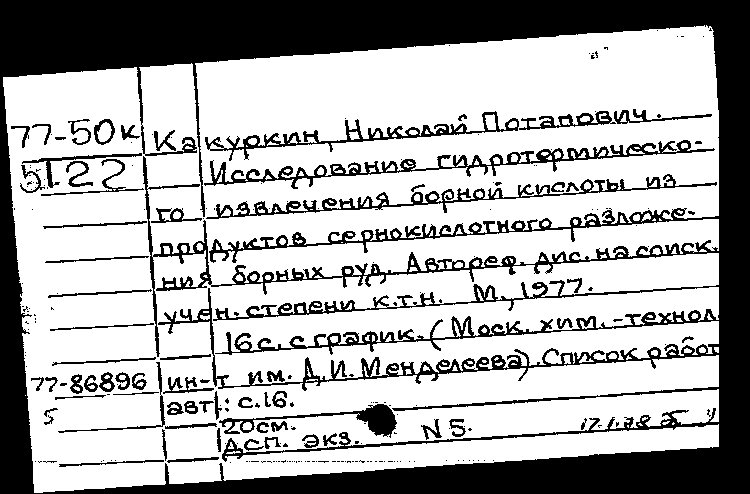 77-50к Какуркин, Николай Потапович.
5122 Исследование гидротермическо-
го извлечения борной кислоты из
продуктов сернокислотного разложе-
ния борных руд. Автореф. дис. на соиск.
учен. степени к.т.н. М., 1977.
16 с. с график. (Моск. хим.-технол.
77-86896 ин-т им. Д.И. Менделеева). Список работ
5 авт.: с.16.
20см.
Дсп. экз. N 5. 17.1.78